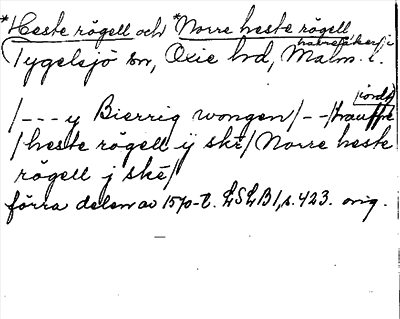 *Heste rögell och *Norre heste rögell
Tygelsjö sn, Oxie hd, Malm. l.
/--- y Bierrig wongen/--/
/heste rögell ÿ skē/ Norre heste
rögell j skē/
förra delen av 1570-t. LSLB1, s. 423. orig.